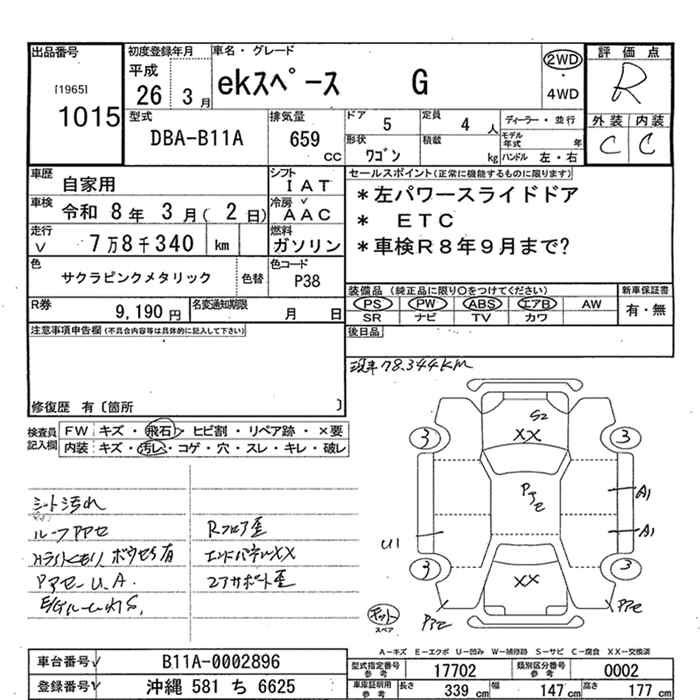 出品番号
[1965]
1015
初度登録年月
平成
26 3月
車名・グレード
ekスペース G
2WD
・
4WD
評価点
R
外装 内装
C C
型式
DBA-B11A
排気量
659
cc
ドア
5
定員
4 人
形状
ワゴン
積載
kg
ディーラー・並行
モデル年式 年
ハンドル 左・右
車歴
自家用
シフト
IAT
車検
令和 8年 3月( 2日)
冷房
AAC
走行
7万8千340 km
燃料
ガソリン
色
サクラピンクメタリック
色替
色コード
P38
セールスポイント(正常に機能するものに限ります)
*左パワースライドドア
* ETC
*車検R8年9月まで?
R券
9,190円
名変通知期限
月 日
装備品 (純正品に限り○をつけてください)
PS PW ABS エアB AW
SR ナビ TV カワ
新車保証書
有・無
注意事項申告欄(不具合内容等は具体的に記入して下さい)
後日品
修復歴 有〔箇所 〕
現車78.344KM
検査員記入欄
FW キズ・飛石・ヒビ割・リペア跡・×要
内装 キズ・汚レ・コゲ・穴・スレ・キレ・破レ
シート汚れ
ルーフPアセ
Hライトくもり ボウセキ有
Pアセ U.A.
E/GルームサS.
Rフロア歪
エンドパネルXX
コアサポート歪
S2
XX
3 3
Pアセ
A1
A1
U1
3 3
XX
Pアセ Pアセ
キット
スペア
A-キズ E-エクボ U-凹み W-補修跡 S-サビ C-腐食 XX-交換済
車台番号
B11A-0002896
登録番号
沖縄 581 ち 6625
型式指定番号
参考
17702
類別区分番号
参考
0002
車庫証明用
参考
長さ 339 cm
幅 147 cm
高さ 177 cm